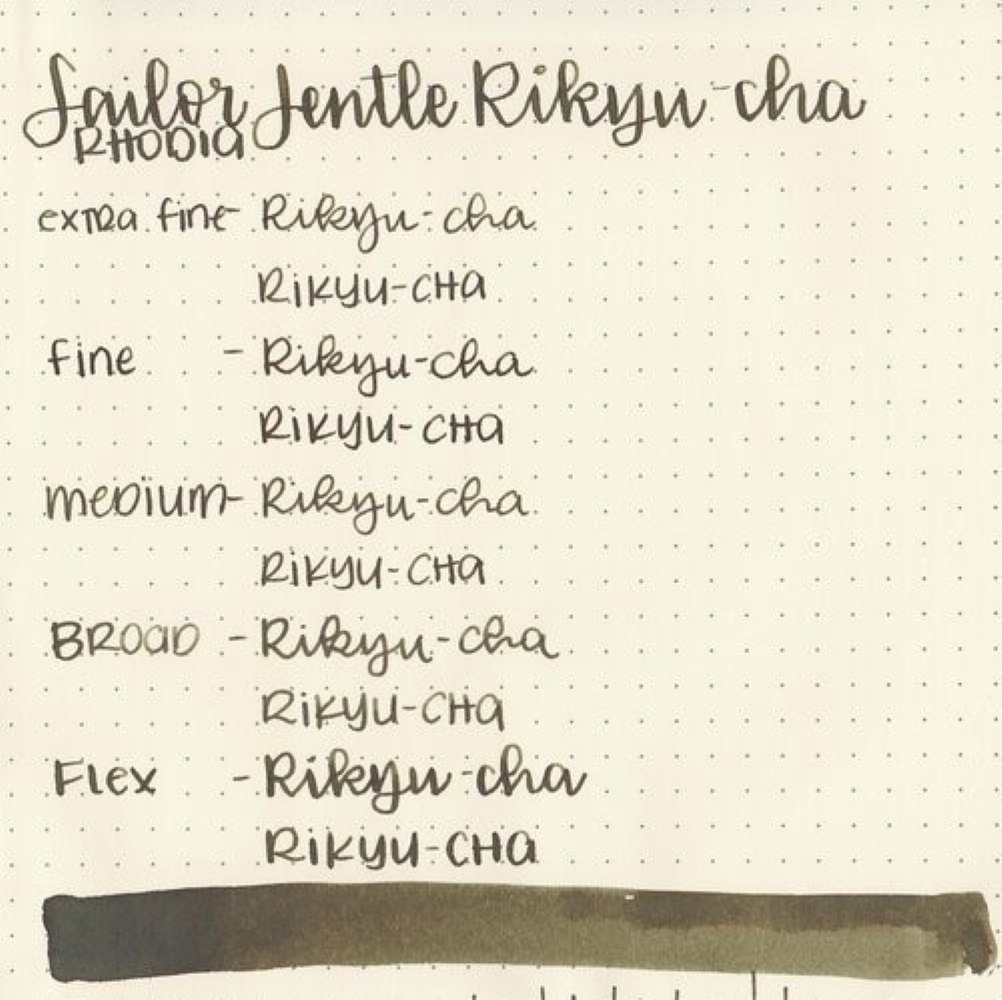 Sailor Jentle Rikyu-cha
RHODIA
extra fine- Rikyu-cha
RiKyu-CHA
fine - Rikyu-cha
RiKyu-CHA
meDium- Rikyu-cha
RiKyu-CHA
BROAD - Rikyu-cha
RiKyu-CHA
Flex - Rikyu-cha
RiKyu-CHA